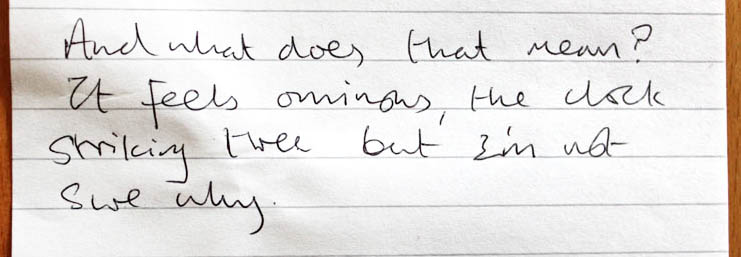 And what does that mean?
It feels ominous, the clock
striking three but I'm not
sure why.